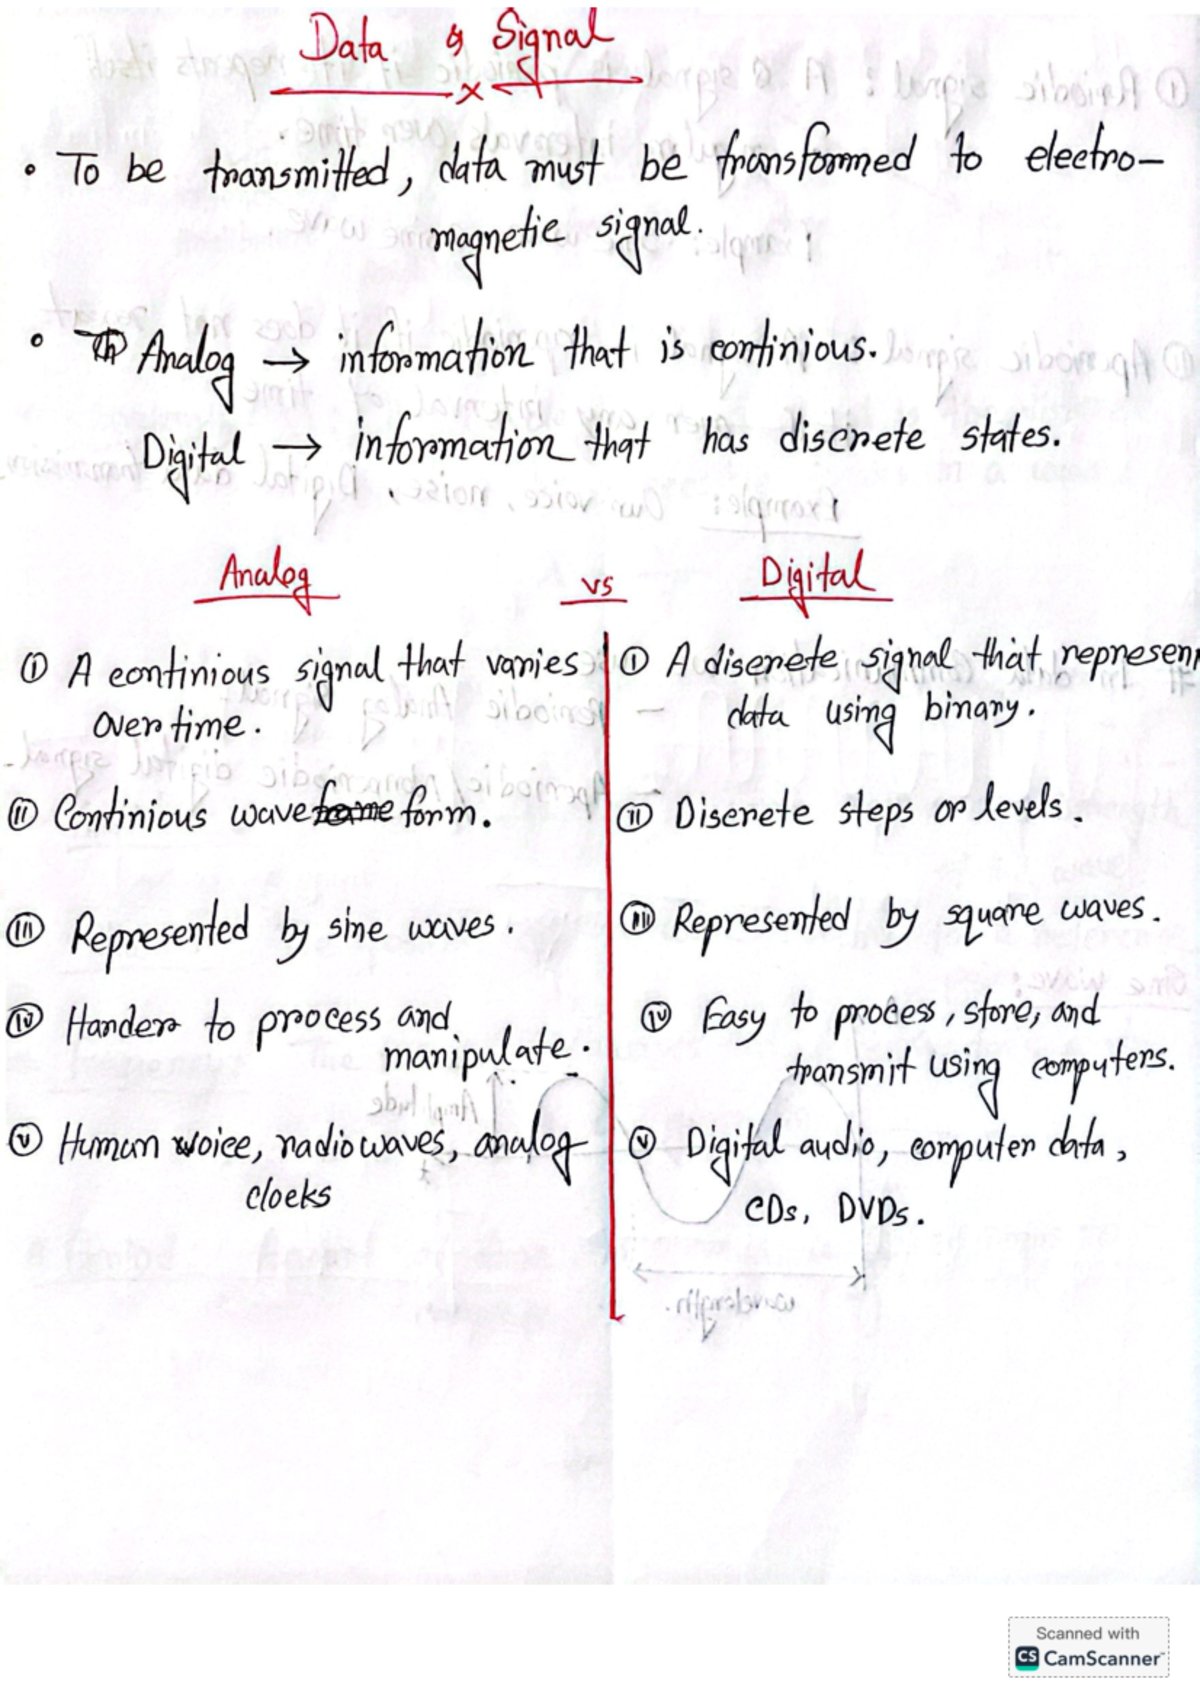 Data & Signal
• To be transmitted, data must be transformed to electro-
magnetic signal.
• Analog → information that is continious.
Digital → information that has discrete states.
Analog vs Digital
(i) A continious signal that varies
over time.
(ii) Continious wave form.
(iii) Represented by sine waves.
(iv) Harder to process and
manipulate.
(v) Human voice, radio waves, analog
clocks
(i) A discrete signal that represen
data using binary.
(ii) Discrete steps or levels.
(iii) Represented by square waves.
(iv) Easy to process, store, and
transmit using computers.
(v) Digital audio, computer data,
CDs, DVDs.
Scanned with
CS CamScanner